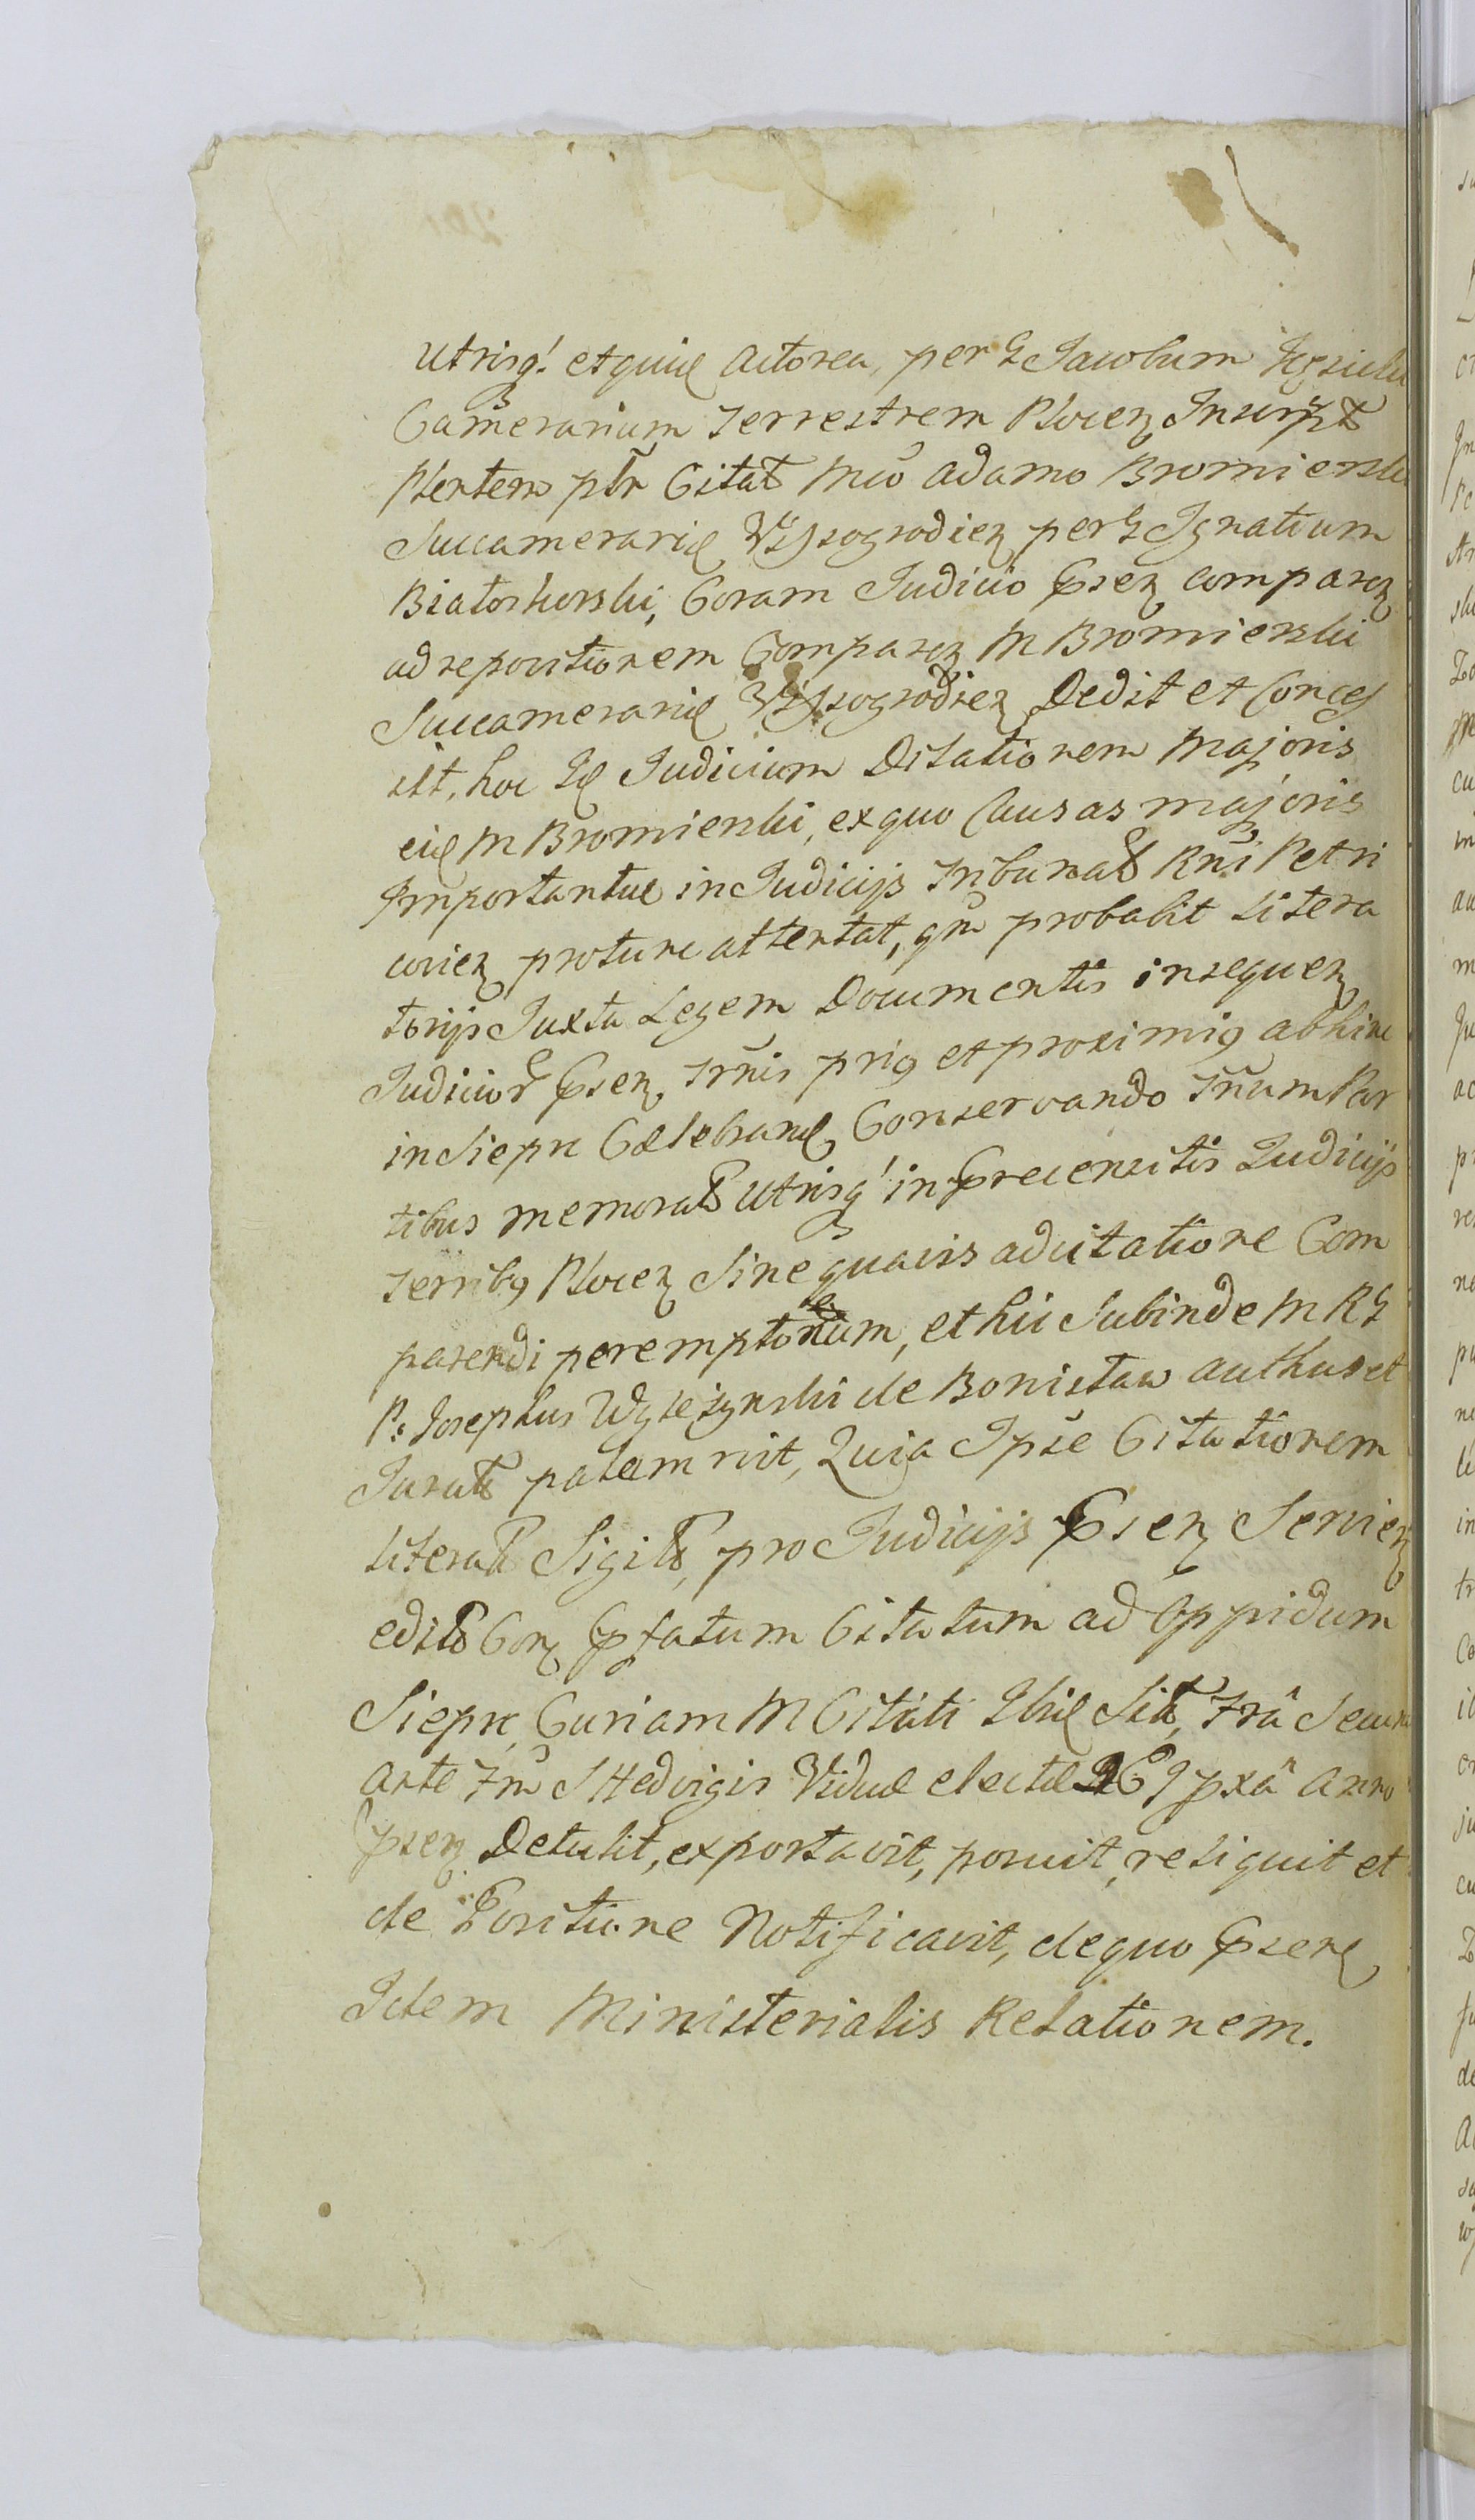 utrisq. et quid actorea, per G Jacobum
Camerarium Terrestrem Plocen Inscript
Plenten pltr Citat Mco Adamo Bromierski
Succamerario Wyssogrodien per G Ignatium
Białoskorski, Coram Judicio Psen comparen
ad repositionem Comparen M Bromierski
Succamerarii Wyssogrodien Dedit et Conces
sit, hoc Id Judicium Dilationem Majoris
eid M Bromierski, ex quo Causas majoris
Importantiae in Judicijs Tribunal Rni Petri
covien protunc attentat, qm probabit Litera
torijs Juxta Legem Documentis insequen
Judicior Psen Trnis prius et proximius abhinc
in Siepn Celebrand, Conservando Trnum Par
tibus memorat utrisq in Precensitis Judicijs
Terribus Plocen Sine quavis adcitatione Com
parendi peremptorium, et hic Subinde M RG
P. Josephus Wylezynski de Bonisław authus et
Jurat palam rvit, Quia Ipse Citationem
Literat Sigilt, pro Judicijs Psen Servien
edit Con Pfatum Citatum ad Oppidum
Siepn Curiam M Citati Ibid Sit, Fra Secun
ante Fm S Hedvigis Viduae electae Pxa Anno
Psen Detulit, exportavit, posuit, reliquit et
de Positione Notificavit, de quo Psen
Idem Ministerialis Relationem.